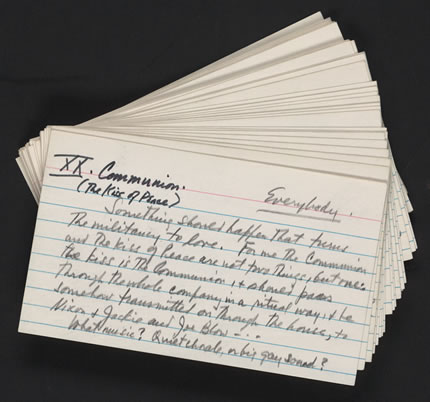 XX. Communion.
(The Kiss of Peace)
Everybody.
Something should happen that turns
the militancy to love. For me the Communion
and the Kiss of Peace are not two things, but one:
the kiss is the Communion, & should pass
through the whole company in a ritual way, & be
somehow transmitted on through the house, to
Nixon & Jackie and Joe Blow...
What music? Quiet chorale, or big gay sound?